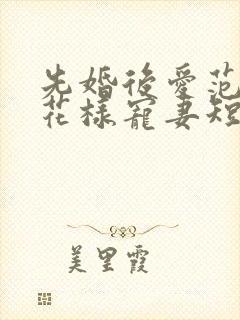 先婚後愛范
花樣寵妻短
美里霞